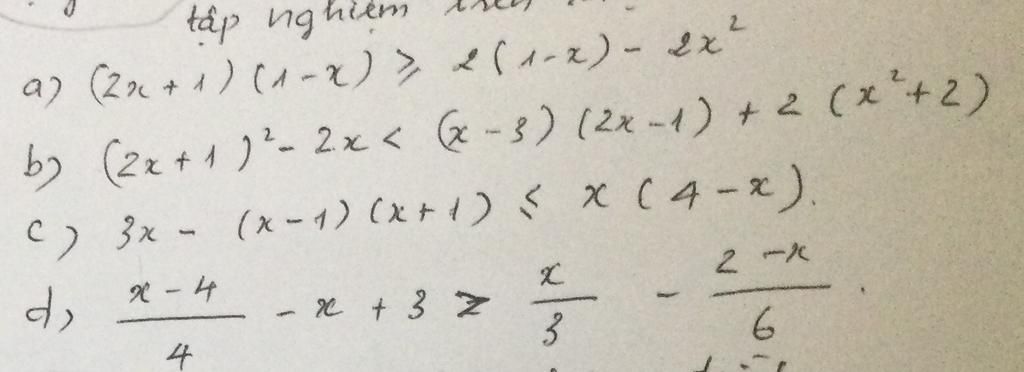 tập nghiệm trên
a) (2x+1)(1-x) ≥ 2(1-x) - 2x²
b) (2x+1)² - 2x < (x-3)(2x-1) + 2(x²+2)
c) 3x - (x-1)(x+1) ≤ x(4-x).
d) (x-4)/4 - x + 3 > x/3 - (2-x)/6.